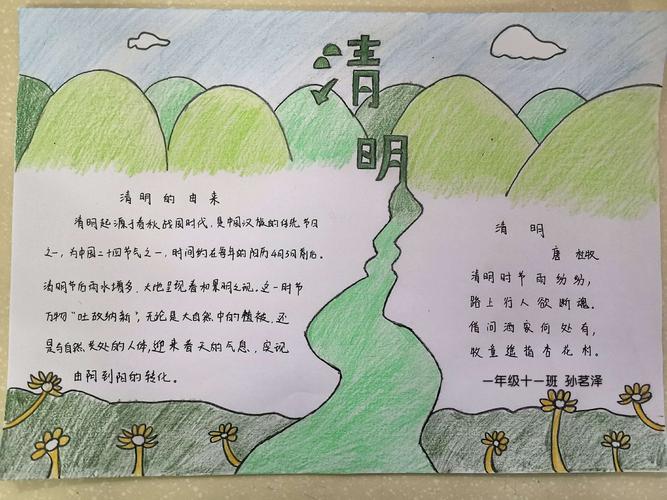 清明
清明的由来
清明起源于春秋战国时代，是中国汉族的传统节日
之一，为中国二十四节气之一，时间约在每年的阳历4月5日前后。
清明节后雨水增多，大地呈现春和景明之现。这一时节
万物“吐故纳新”，无论是大自然中的植被，还
是与自然共处的人体，迎来春天的气息，实现
由阴到阳的转化。
清明
唐 杜牧
清明时节雨纷纷，
路上行人欲断魂。
借问酒家何处有，
牧童遥指杏花村。
一年级十一班 孙茗泽